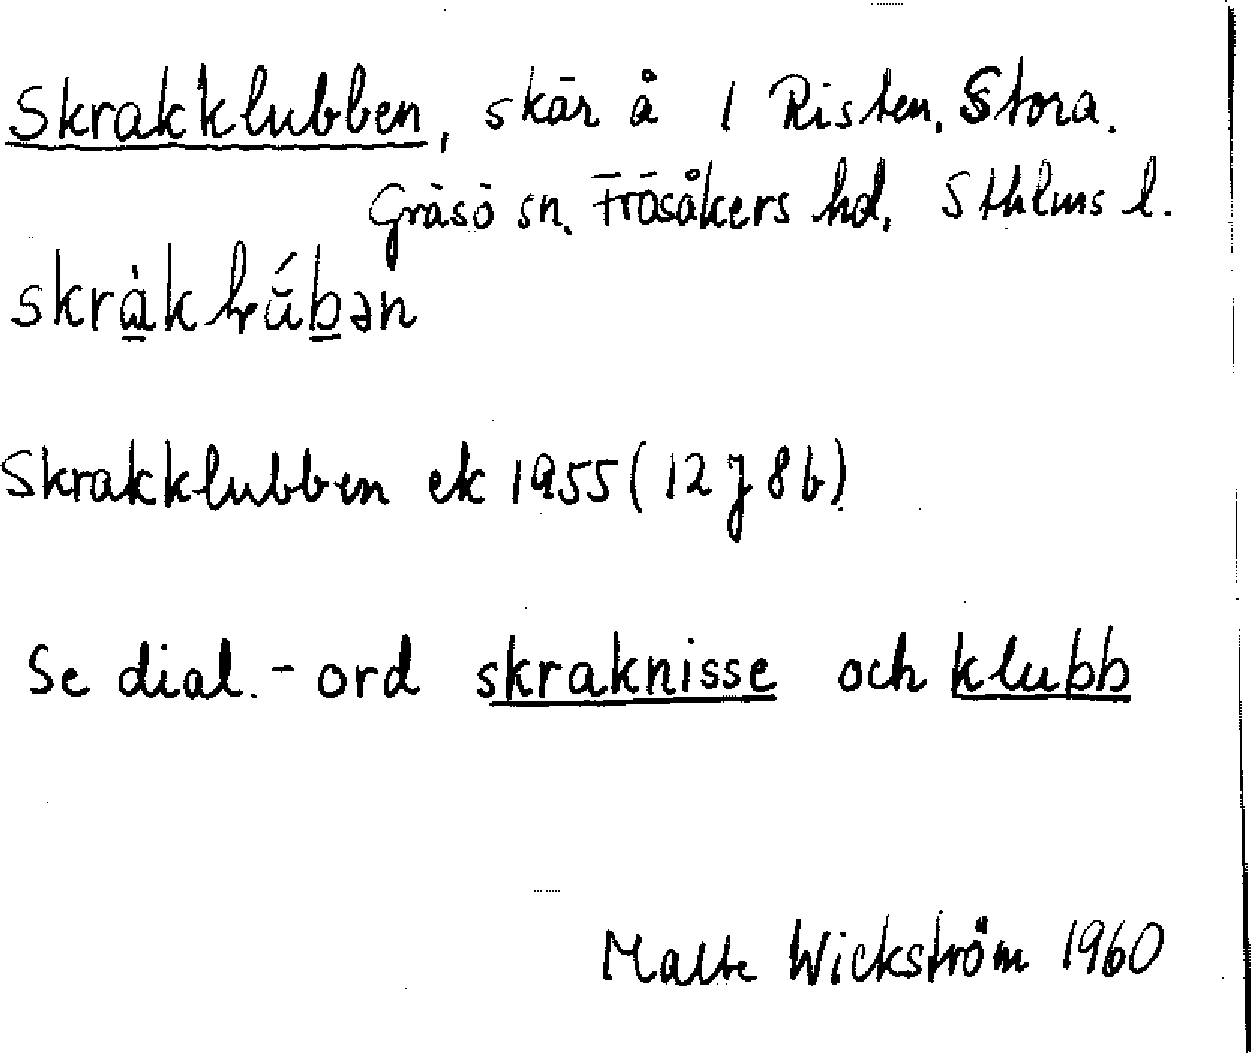 Skrakklubben, skär å 1 Risten, Stora.
Gräsö sn, Frösåkers hd, Sthlms l.
skràkkɽúbən
Skrakklubben ek 1955 (12 J 8 b)
Se dial.-ord skraknisse och klubb
Malte Wickström 1960